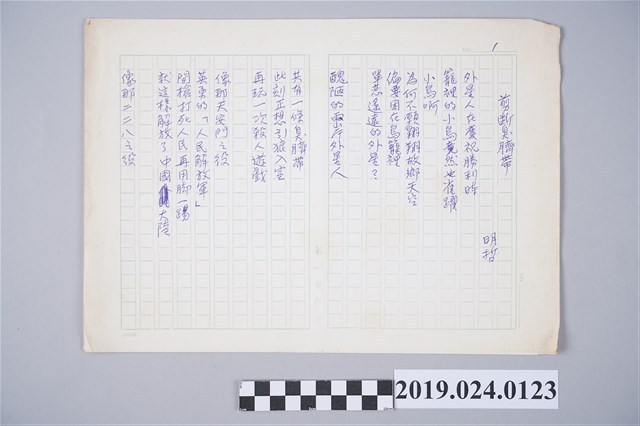 1
剪斷臭臍帶
明哲
外星人在慶祝勝利時
籠裡的小鳥竟然也雀躍
小鳥啊
為何不翱翔故鄉天空
偏要困在鳥籠裡
單戀遙遠的外星?
醜陋的 外星人
共有一條臭臍帶
此刻正想引狼入室
再玩一次殺人遊戲
像那天安門之役
英勇的「人民解放軍」
開槍打死人民再用腳一踢
就這樣解放了中國大陸
像那二二八之役
2019.024.0123